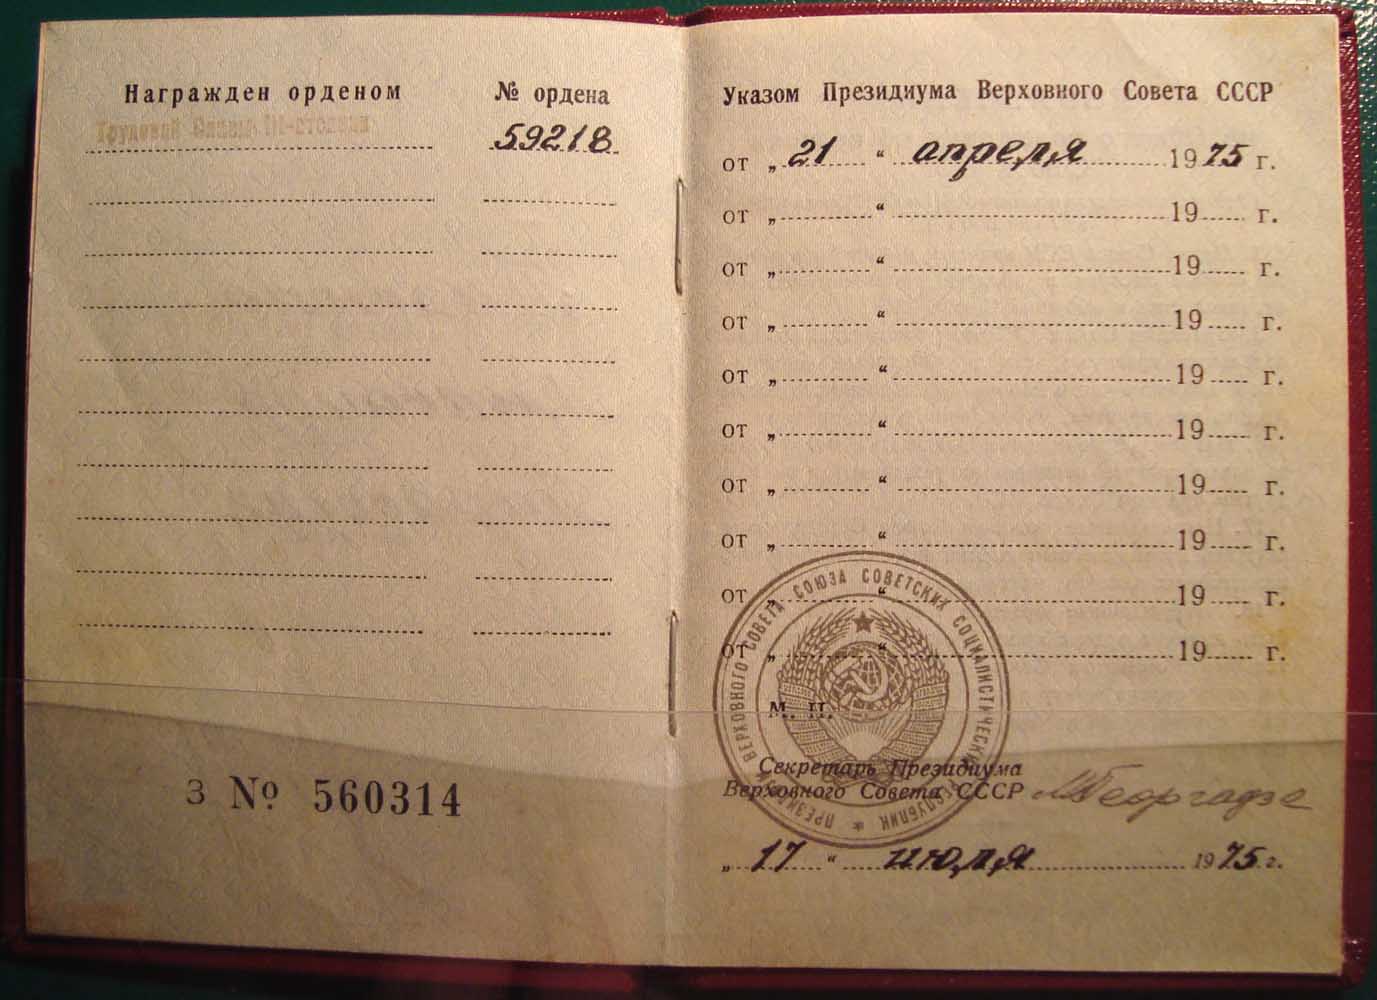 Награжден орденом № ордена
Трудовой Славы III степени 59218
З № 560314
Указом Президиума Верховного Совета СССР
от „ 21 “ апреля 1975 г.
от „ “ 19 г.
от „ “ 19 г.
от „ “ 19 г.
от „ “ 19 г.
от „ “ 19 г.
от „ “ 19 г.
от „ “ 19 г.
от „ “ 19 г.
от „ “ 19 г.
ПРЕЗИДИУМ ВЕРХОВНОГО СОВЕТА СОЮЗА СОВЕТСКИХ СОЦИАЛИСТИЧЕСКИХ РЕСПУБЛИК
М. П.
Секретарь Президиума
Верховного Совета СССР М Георгадзе
„ 17 “ июля 1975 г.